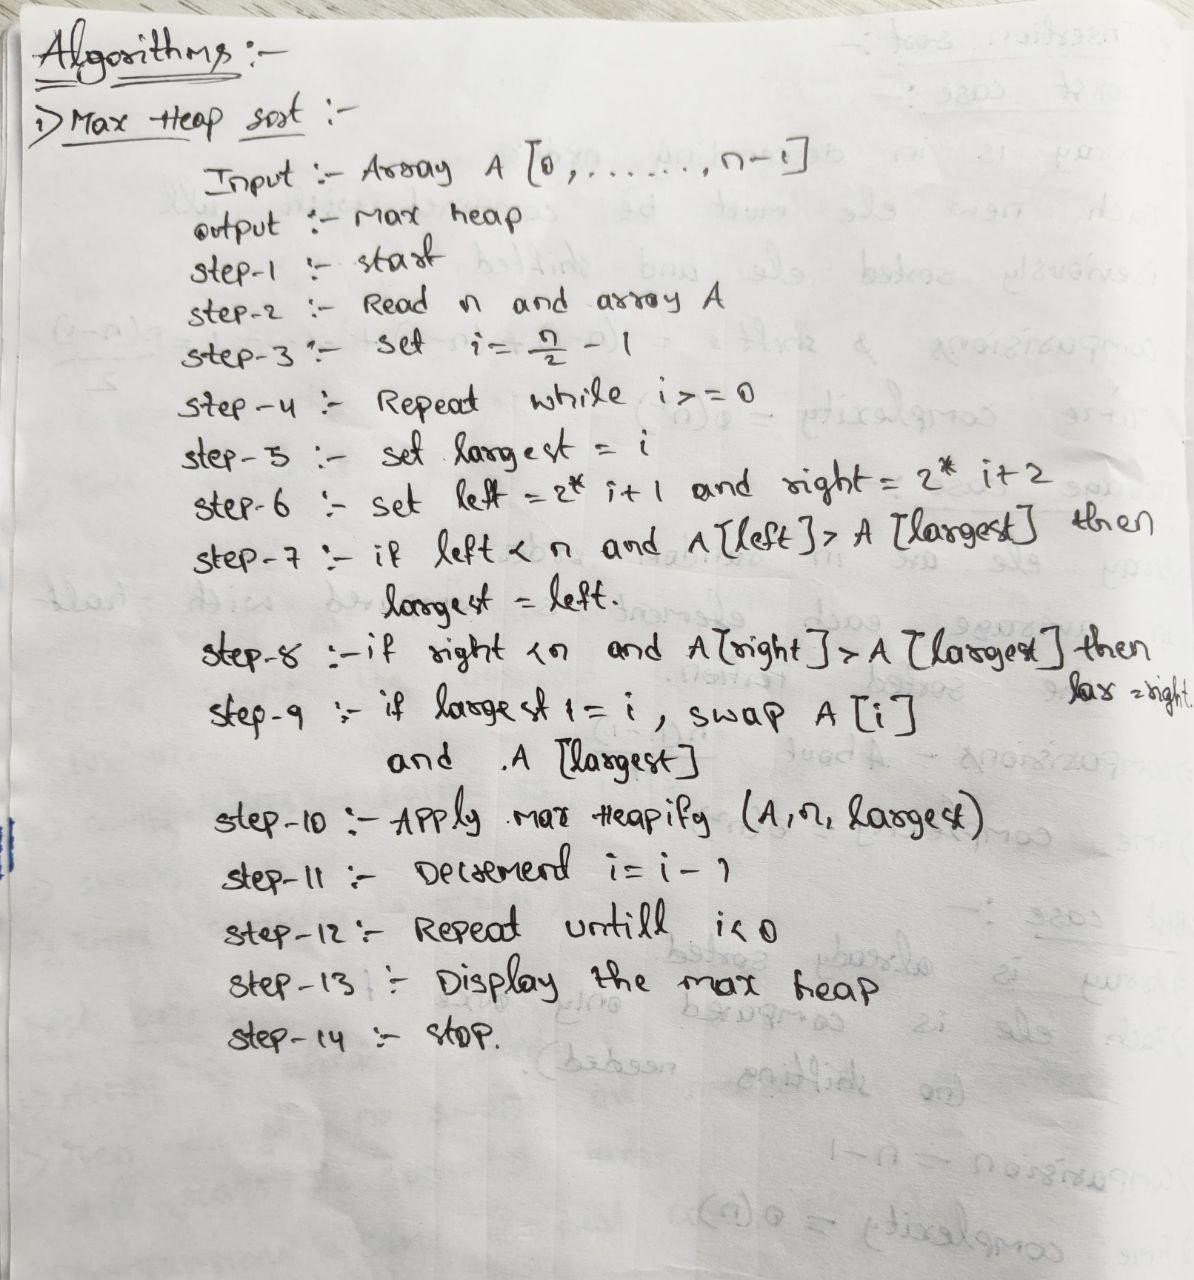 Algorithms :-
1) Max Heap sort :-
Input :- Array A [0,.......,n-1]
output :- Max heap
step-1 :- start
step-2 :- Read n and array A
step-3 :- set i = n/2 - 1
step-4 :- Repeat while i >= 0
step-5 :- set largest = i
step-6 :- set left = 2* i+1 and right = 2* i+2
step-7 :- if left < n and A[left] > A [largest] then
largest = left.
step-8 :- if right < n and A[right] > A [largest] then
lar = right.
step-9 :- if largest != i, swap A [i]
and A [largest]
step-10 :- Apply max Heapify (A, n, largest)
step-11 :- Decremend i = i - 1
step-12 :- Repeat untill i < 0
step-13 :- Display the max heap
step-14 :- stop.